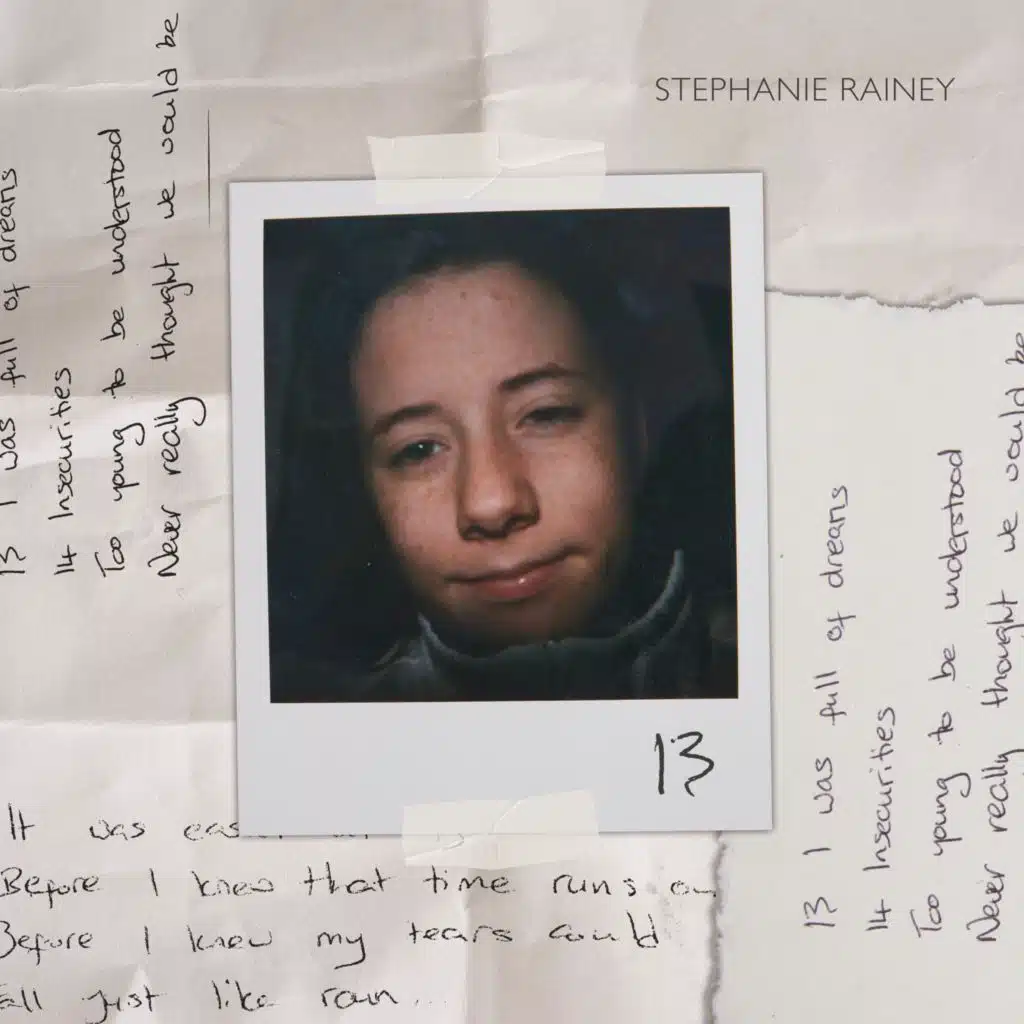 STEPHANIE RAINEY
13 I was full of dreams
14 Insecurities
Too young to be understood
Never really thought we would be
13
13 I was full of dreams
14 Insecurities
Too young to be understood
Never really thought we would be
It was
Before I knew that time runs
Before I knew my tears could
just like rain...